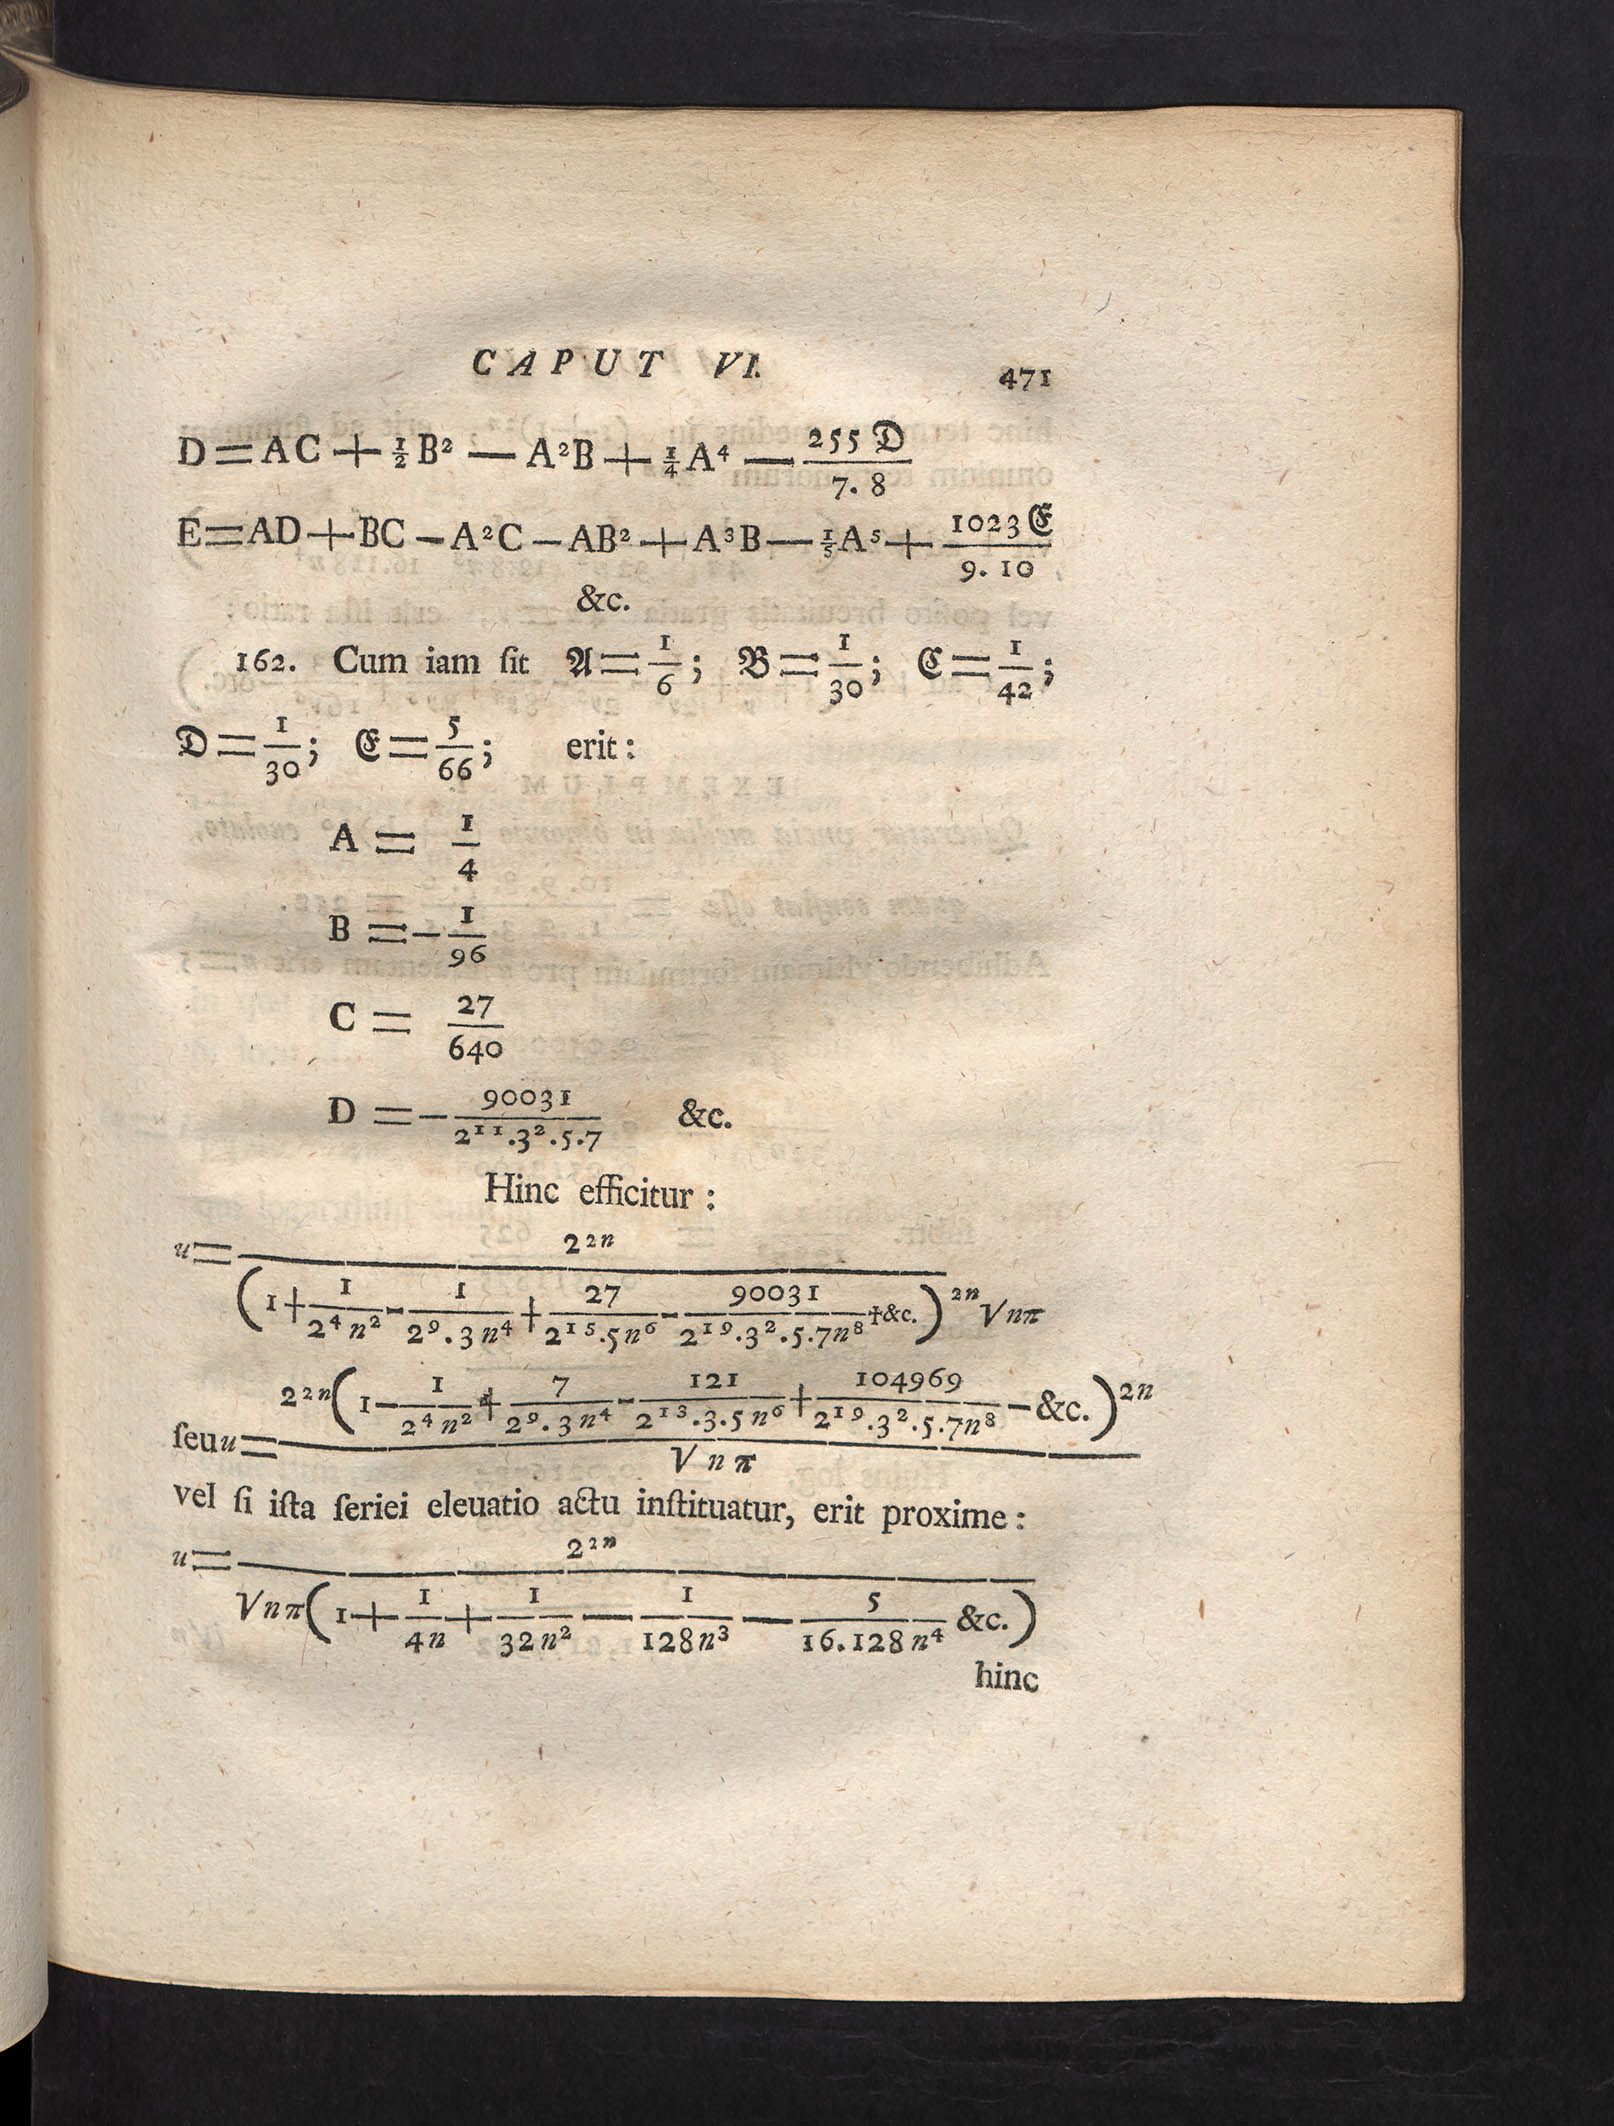 CAPUT VI. 471
D=AC+½B²—A²B+¼A⁴—255𝔇/7.8
E=AD+BC—A²C—AB²+A³B—⅕A⁵+1023𝔈/9.10
&c.
162. Cum iam ſit 𝔄=1/6; 𝔅=1/30; ℭ=1/42;
𝔇=1/30; 𝔈=5/66; erit:
A = 1/4
B =—1/96
C = 27/640
D =—90031/2¹¹.3².5.7 &c.
Hinc efficitur:
u=2²ⁿ/(1+1/2⁴n²-1/2⁹.3n⁴+27/2¹⁵.5n⁶-90031/2¹⁹.3².5.7n⁸+&c.)²ⁿ√nπ
ſeu u=2²ⁿ(1—1/2⁴n²+7/2⁹.3n⁴-121/2¹³.3.5n⁶+104969/2¹⁹.3².5.7n⁸—&c.)²ⁿ/√nπ
vel ſi iſta ſeriei eleuatio actu inſtituatur, erit proxime:
u=2²ⁿ/√nπ(1+1/4n+1/32n²—1/128n³—5/16.128n⁴ &c.)
hinc